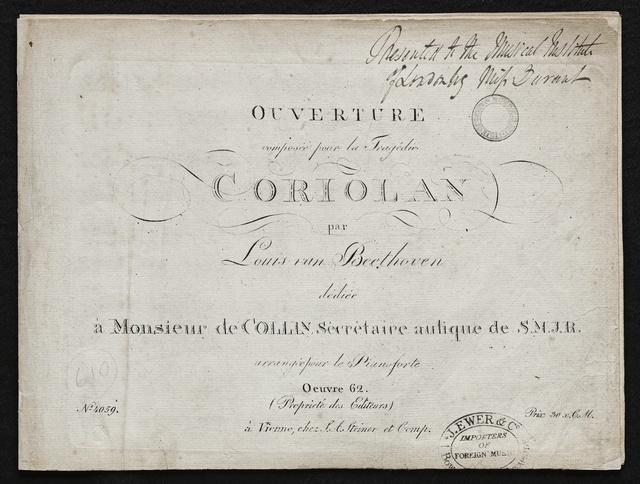 Presented to the Musical Institute
of London by Miss Durant
OUVERTURE
composée pour la Tragédie
CORIOLAN
par
Louis van Beethoven
dédiée
à Monsieur de COLLIN Sécrétaire aulique de S.M.J.R.
arrangée pour le Pianoforte
Oeuvre 62.
(Propriété des Editeurs)
(610)
No. 4059.
Prix 30 x.C.M.
à Vienne, chez S.A. Steiner et Comp.
J. EWER & Co.
IMPORTERS
OF
FOREIGN MUSIC